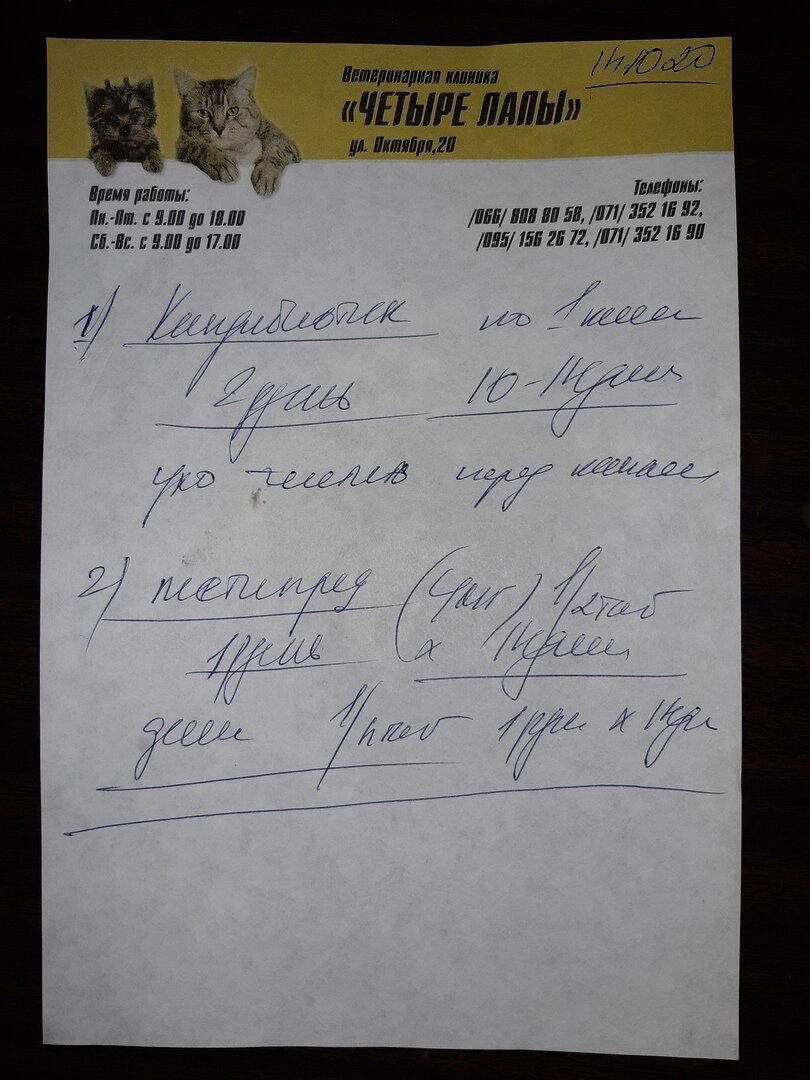 14.10.20
Ветеринарная клиника
«ЧЕТЫРЕ ЛАПЫ»
ул. Октября,20
Время работы:
Пн.-Пт. с 9.00 до 18.00
Сб.-Вс. с 9.00 до 17.00
Телефоны:
/066/ 808 80 58, /071/ 352 16 92,
/095/ 156 26 72, /071/ 352 16 90
1) Кандибиотик по 1 капли
2 р день 10-14 дней
ухо чистить перед
2) метипред (4мг) 1/2 таб
1 р день x 14 дней
далее 1/4 таб 1 р дн x 14 дн